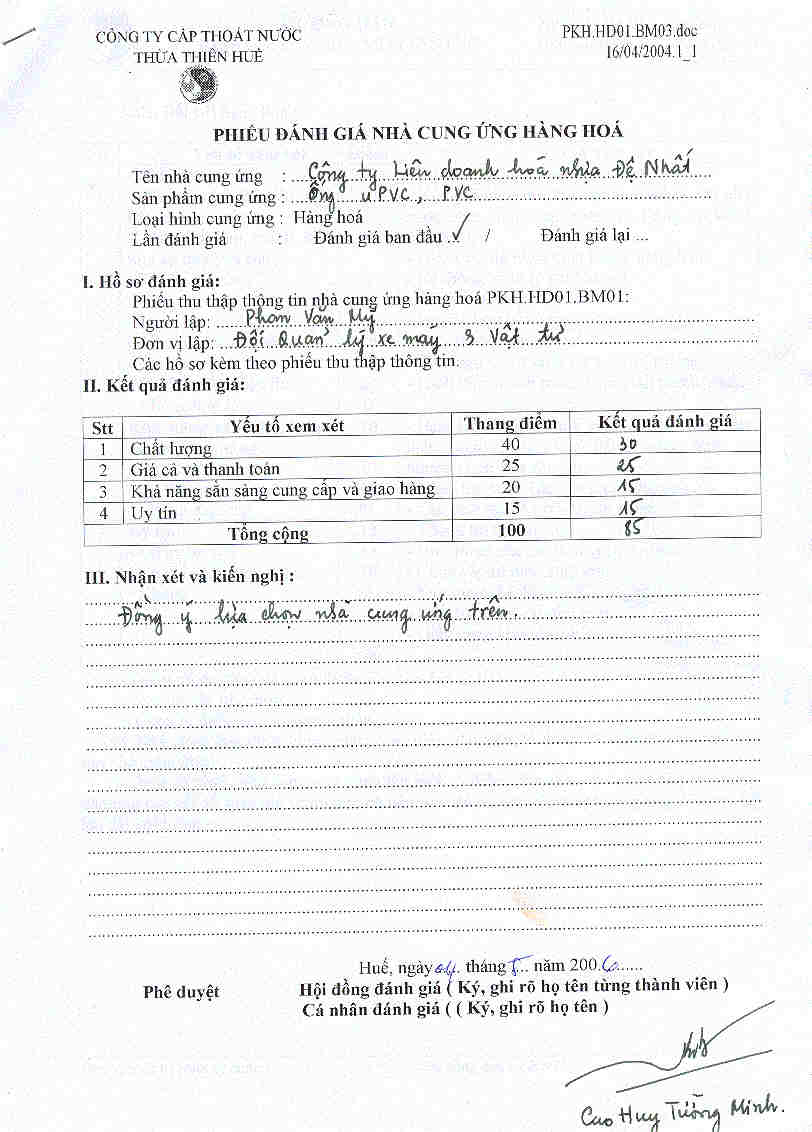 CÔNG TY CẤP THOÁT NƯỚC
THỪA THIÊN HUẾ
PKH.HD01.BM03.doc
16/04/2004.1_1
PHIẾU ĐÁNH GIÁ NHÀ CUNG ỨNG HÀNG HOÁ
Tên nhà cung ứng : Công ty Liên doanh hoá nhựa Đệ Nhất
Sản phẩm cung ứng : Ống uPVC, PVC
Loại hình cung ứng : Hàng hoá
Lần đánh giá : Đánh giá ban đầu ..✓ / Đánh giá lại ...
I. Hồ sơ đánh giá:
Phiếu thu thập thông tin nhà cung ứng hàng hoá PKH.HD01.BM01:
Người lập: Phan Văn Mỹ
Đơn vị lập: Đội Quản lý xe máy & Vật tư
Các hồ sơ kèm theo phiếu thu thập thông tin.
II. Kết quả đánh giá:
Stt Yếu tố xem xét Thang điểm Kết quả đánh giá
1 Chất lượng 40 30
2 Giá cả và thanh toán 25 25
3 Khả năng sẵn sàng cung cấp và giao hàng 20 15
4 Uy tín 15 15
Tổng cộng 100 85
III. Nhận xét và kiến nghị :
Đồng ý lựa chọn nhà cung ứng trên.
Huế, ngày 04 tháng 5 năm 2006
Phê duyệt
Hội đồng đánh giá ( Ký, ghi rõ họ tên từng thành viên )
Cá nhân đánh giá ( ( Ký, ghi rõ họ tên )
Cao Huy Tường Minh.